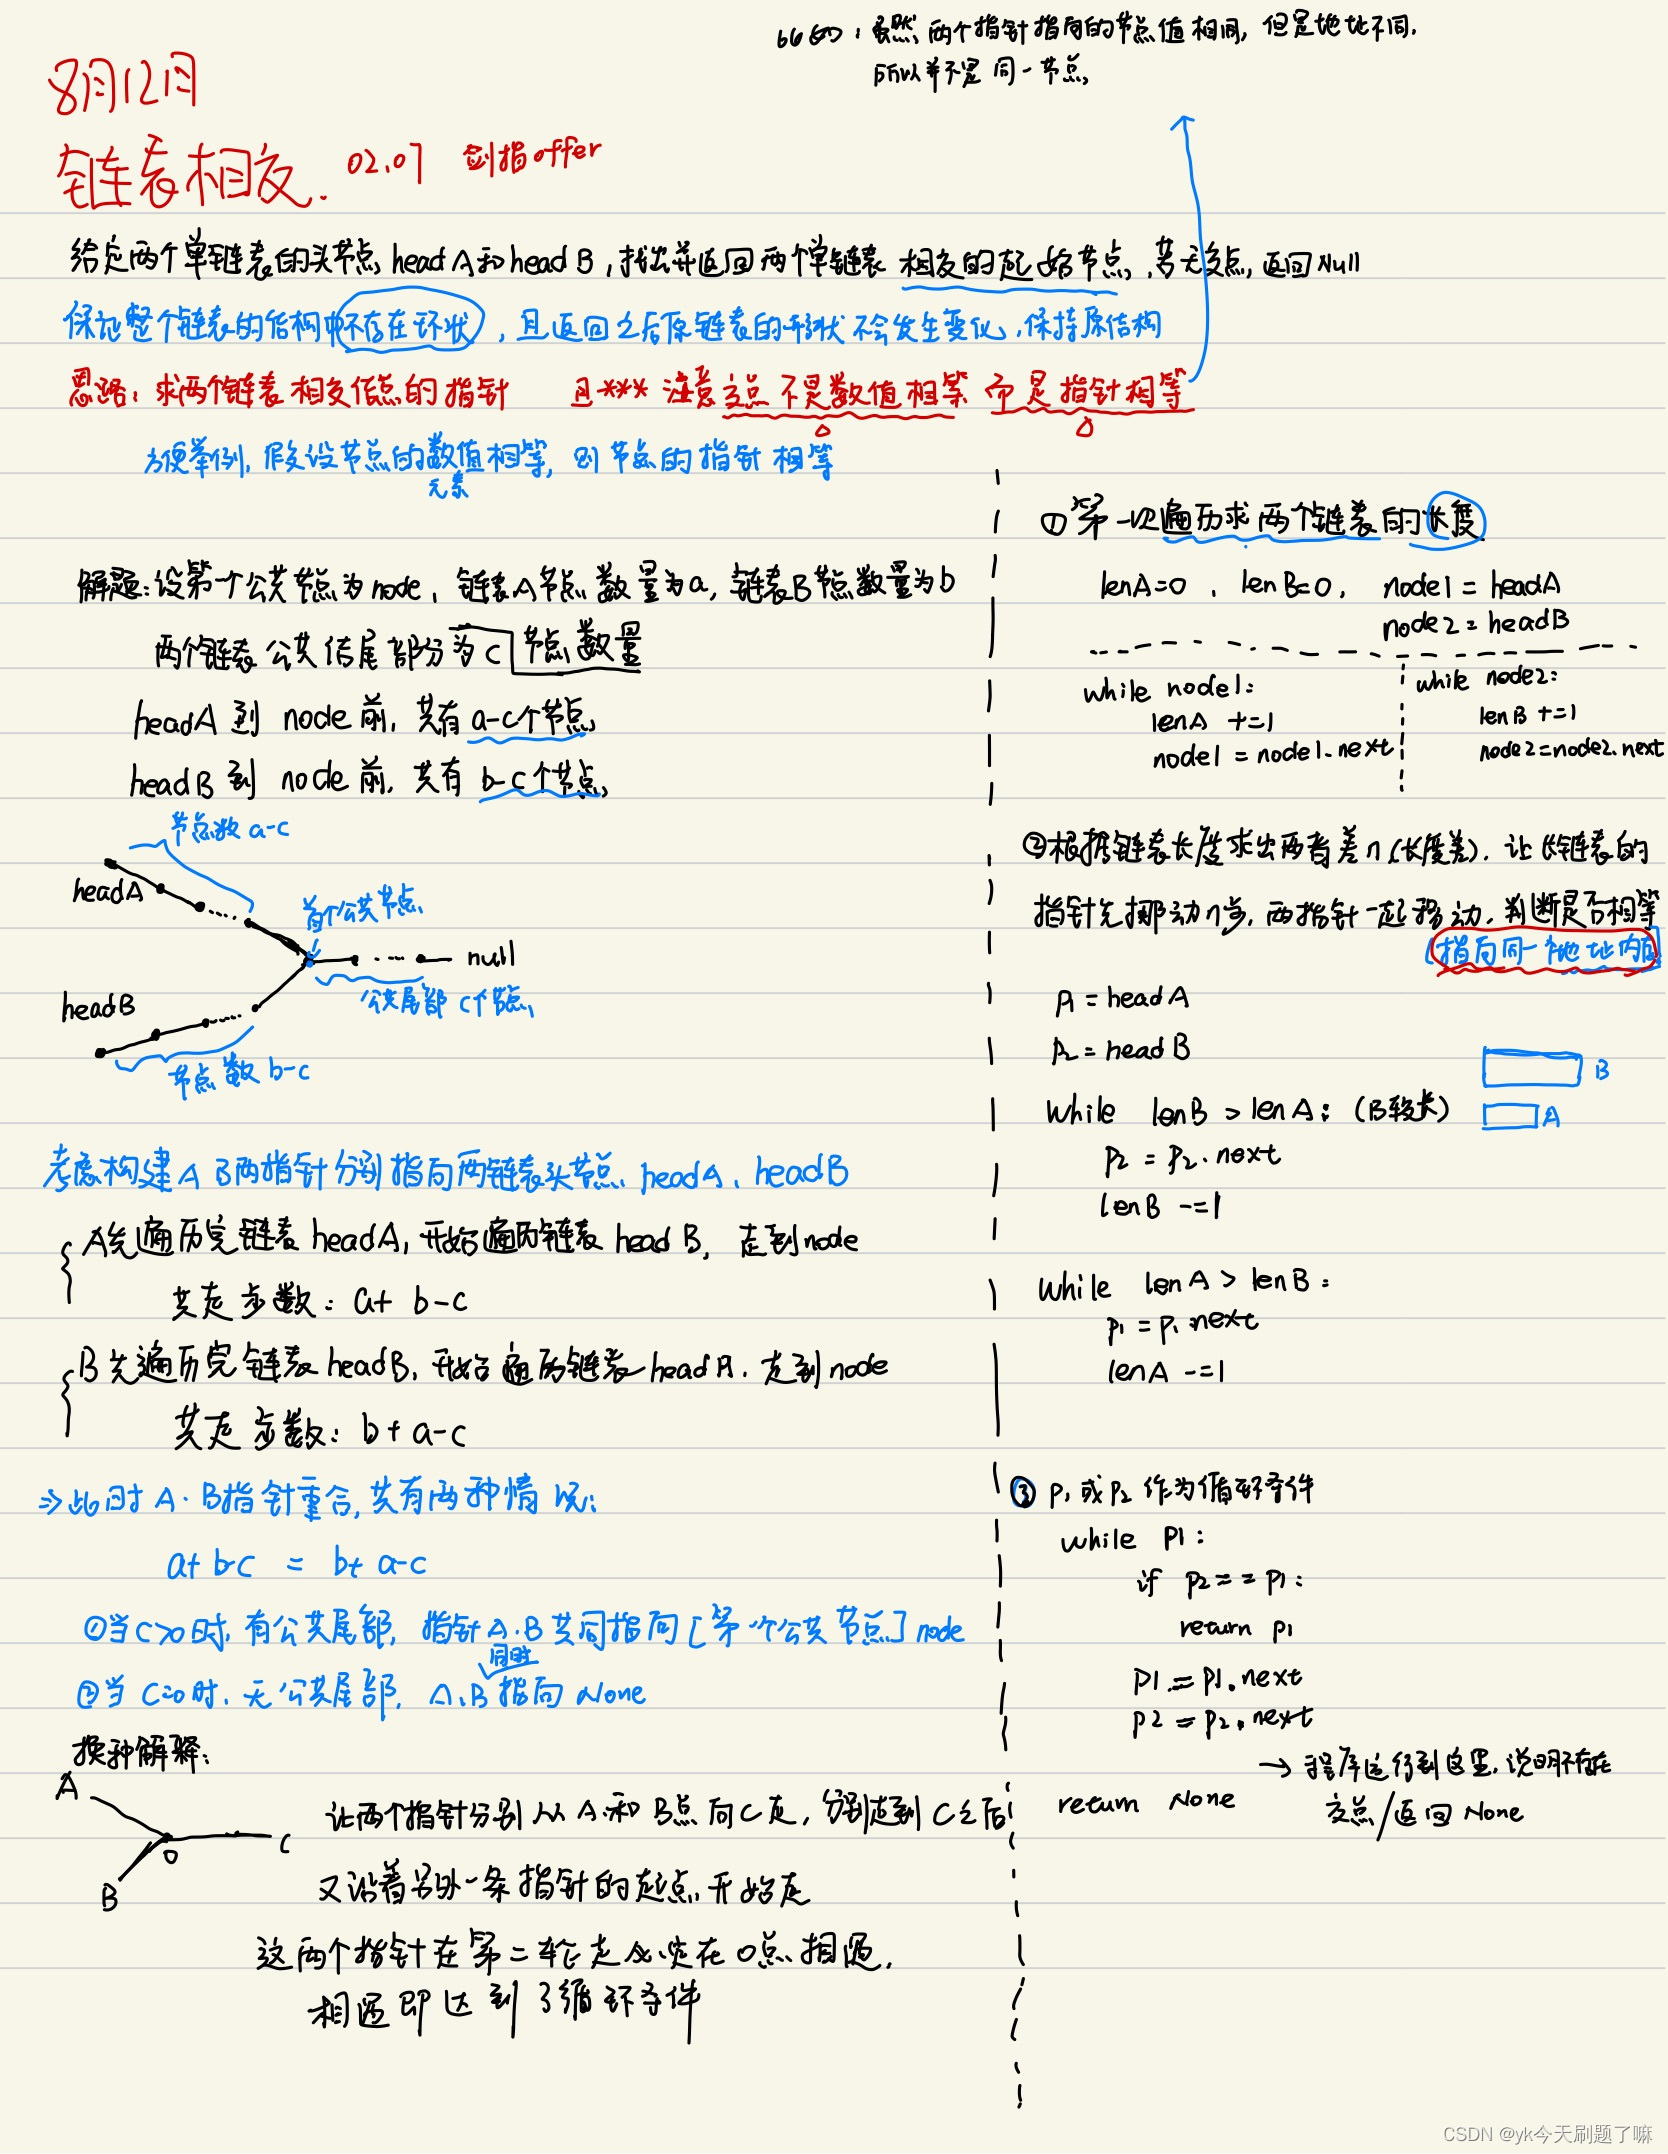 比如：虽然两个指针指向的节点值相同，但是地址不同，
所以并不是同一节点
8月12日
链表相交. 02.07 剑指offer
给定两个单链表的头节点headA和headB，找出并返回两个单链表 相交的起始节点，若无交点，返回Null
保证整个链表的结构中不存在环状，且返回之后原链表的形状不会发生变化，保持原结构
思路：求两个链表相交 点的指针 且*** 注意交点 不是数值相等 而是指针相等
方便举例，假设节点的数值相等，则节点的指针相等
元素
解题：设第一个公共节点为node，链表A节点数量为a，链表B节点数量为b
两个链表公共 尾部分为c 节点数量
headA 到 node前，共有 a-c个节点
headB 到 node前，共有 b-c个节点
节点数 a-c
headA
首个公共节点
null
headB
公共尾部 c个节点
节点数 b-c
考虑构建A B两指针分别指向两链表头节点 headA、headB
A先遍历完链表headA，开始遍历链表headB，走到node
共走步数：a+ b-c
B先遍历完链表headB，开始遍历链表headA，走到node
共走步数：b+ a-c
⇒ 此时 A、B指针重合，共有两种情况：
a+ b-c = b+ a-c
①当C>0时，有公共尾部，指针A、B共同指向[第一个公共节点] node
同时
②当C=0时，无公共尾部，A、B指向None
换种解释：
A
O
C
B
让两个指针分别从A和B点向C走，分别走到C之后
又沿着另外一条指针的起点开始走
这两个指针在第二轮走必定在O点相遇，
相遇即达到了循环条件
①第一次遍历求两个链表的长度
lenA=0 , lenB=0, node1 = headA
node2 = headB
while node1:
lenA +=1
node1 = node1.next
while node2:
lenB +=1
node2=node2.next
②根据链表长度求出两者差n(长度差)，让长链表的
指针先挪动n步，两指针一起移动，判断是否相等
(指向同一个地址内
p1 = headA
p2 = headB
B
A
while lenB > lenA: (B较长)
p2 = p2.next
lenB -=1
while lenA > lenB:
p1 = p1.next
lenA -=1
③ p1或p2作为循环条件
while p1:
if p2 == p1:
return p1
p1 = p1.next
p2 = p2.next
return None
→ 程序运行到这里，说明不存在
交点/返回None
CSDN @yk今天刷题了嘛